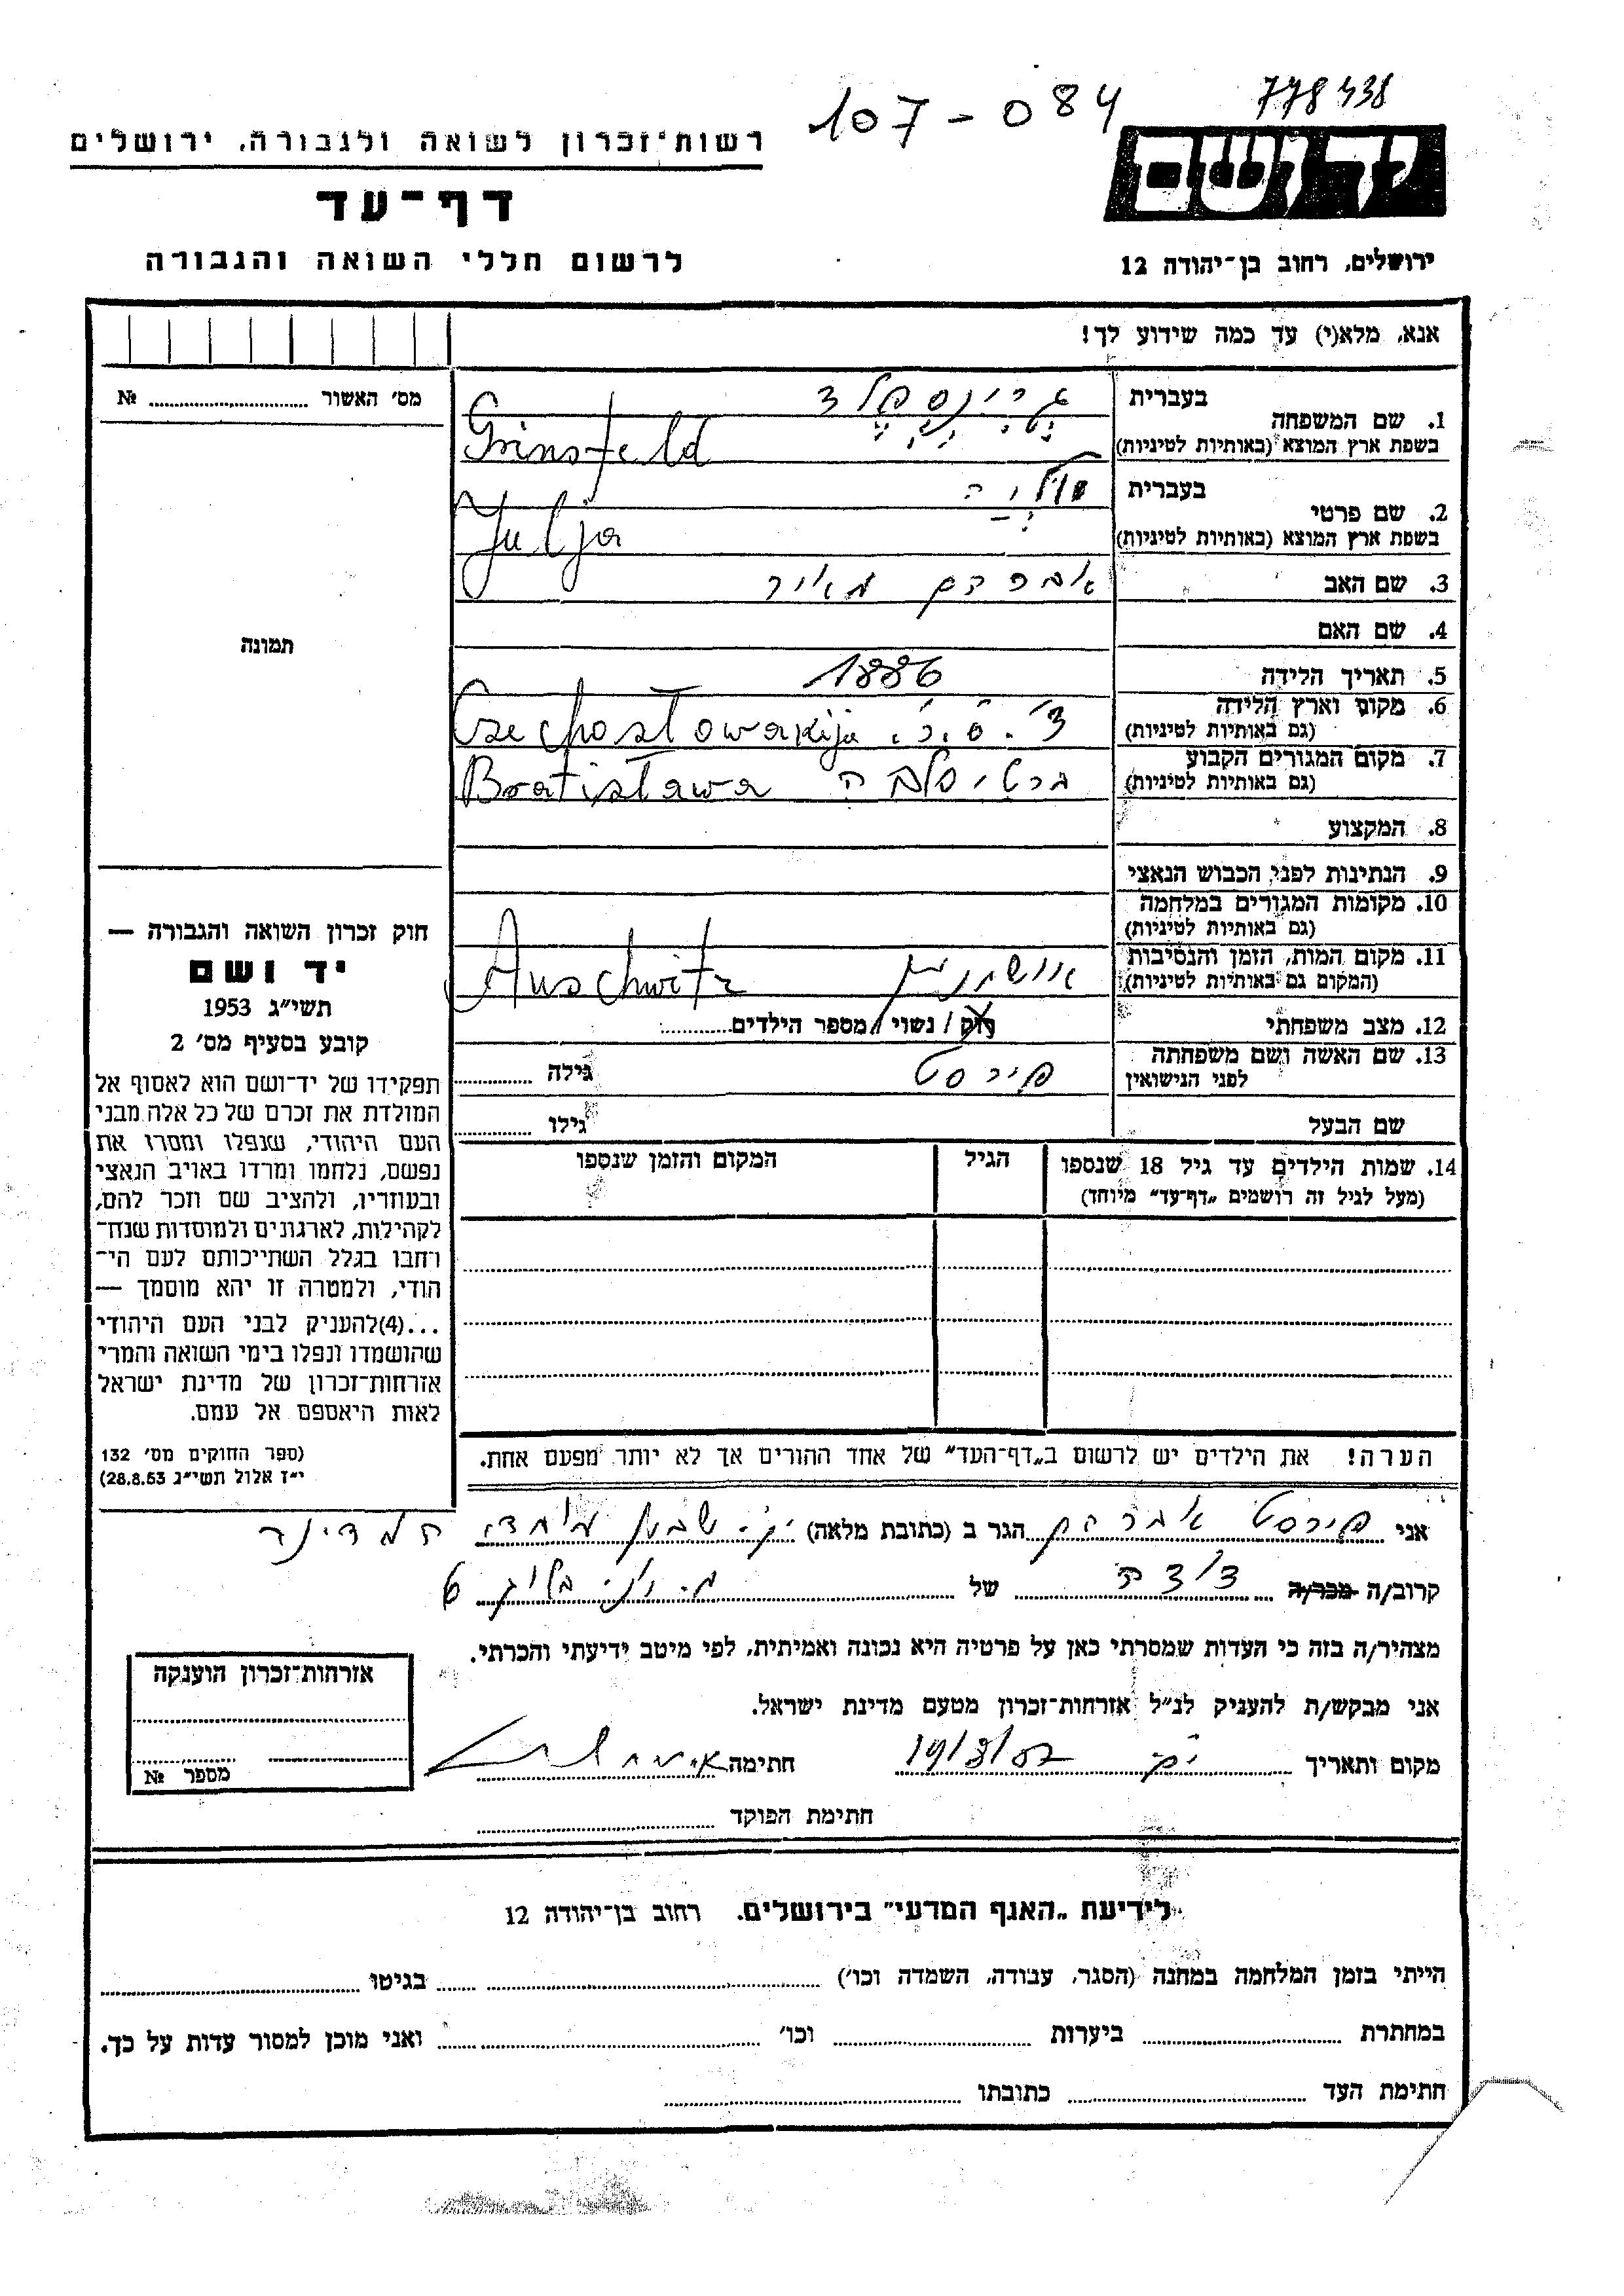 107-084
778438
רשות־זכרון לשואה ולגבורה, ירושלים
דף־עד
לרשום חללי השואה והגבורה
יד ושם
ירושלים, רחוב בן־יהודה 12
אנא, מלא(י) עד כמה שידוע לך!
מס׳ האשור № 
1. שם המשפחה
בעברית גרינספלד
בשפת ארץ המוצא (באותיות לטיניות) Grinsfeld
2. שם פרטי
בעברית
בשפת ארץ המוצא (באותיות לטיניות) Julja
3. שם האב אברהם מאיר
4. שם האם
5. תאריך הלידה 1886
6. מקום וארץ הלידה
(גם באותיות לטיניות) צ׳.ס.ר. Czechosłowakija
7. מקום המגורים הקבוע
(גם באותיות לטיניות) ברטיסלבה Bratisława
8. המקצוע
9. הנתינות לפני הכבוש הנאצי
10. מקומות המגורים במלחמה
(גם באותיות לטיניות)
11. מקום המות, הזמן והנסיבות
(המקום גם באותיות לטיניות) אושוויץ Auschwitz
12. מצב משפחתי רוק / נשוי / מספר הילדים
13. שם האשה ושם משפחתה
לפני הנישואין פירסט גילה
שם הבעל גילו
14. שמות הילדים עד גיל 18 שנספו
(מעל לגיל זה רושמים „דף־עד״ מיוחד)
הגיל
המקום והזמן שנספו
הערה! את הילדים יש לרשום ב„דף־העד״ של אחד ההורים אך לא יותר מפעם אחת.
תמונה
חוק זכרון השואה והגבורה —
יד ושם
תשי״ג 1953
קובע בסעיף מס׳ 2
תפקידו של יד־ושם הוא לאסוף אל
המולדת את זכרם של כל אלה מבני
העם היהודי, שנפלו ומסרו את
נפשם, נלחמו ומרדו באויב הנאצי
ובעוזריו, ולהציב שם וזכר להם,
לקהילות, לארגונים ולמוסדות שנח־
רחבו בגלל השתייכותם לעם הי־
הודי, ולמטרה זו יהא מוסמך —
...(4)להעניק לבני העם היהודי
שהושמדו ונפלו בימי השואה והמרי
אזרחות־זכרון של מדינת ישראל
לאות היאספם אל עמם.
(ספר החוקים מס׳ 132
י״ז אלול תשי״ג 28.8.53)
אני פירסט אברהם הגר ב (כתובת מלאה)
קרוב/ה מכר/ה של
מצהיר/ה בזה כי העדות שמסרתי כאן על פרטיה היא נכונה ואמיתית, לפי מיטב ידיעתי והכרתי.
אני מבקש/ת להעניק לנ״ל אזרחות־זכרון מטעם מדינת ישראל.
מקום ותאריך חתימה
חתימת הפוקד
אזרחות־זכרון הוענקה
מספר №
לידיעת „האגף המדעי״ בירושלים, רחוב בן־יהודה 12
הייתי בזמן המלחמה במחנה (הסגר, עבודה, השמדה וכו׳) בגיטו
במחתרת ביערות וכו׳ ואני מוכן למסור עדות על כך.
חתימת העד כתובתו